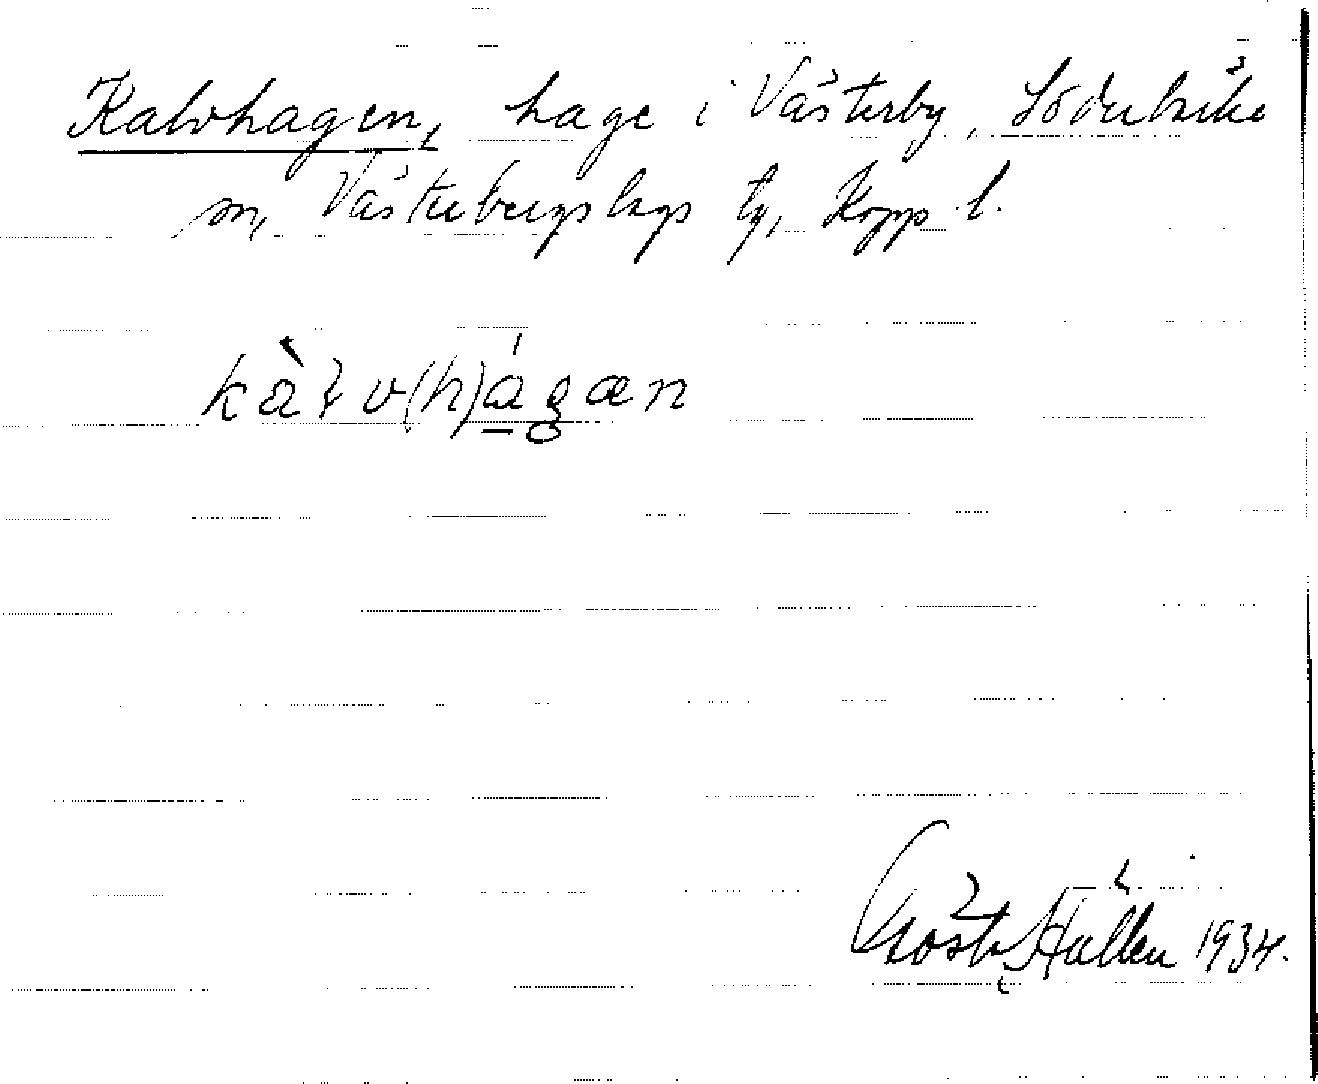 Kalvhagen, hage i Västerby, Söderbärke
sn, Västerbergslags tg, Kopp. l.
kàɬv(h)ágæn
Gösta Hällen 1934.